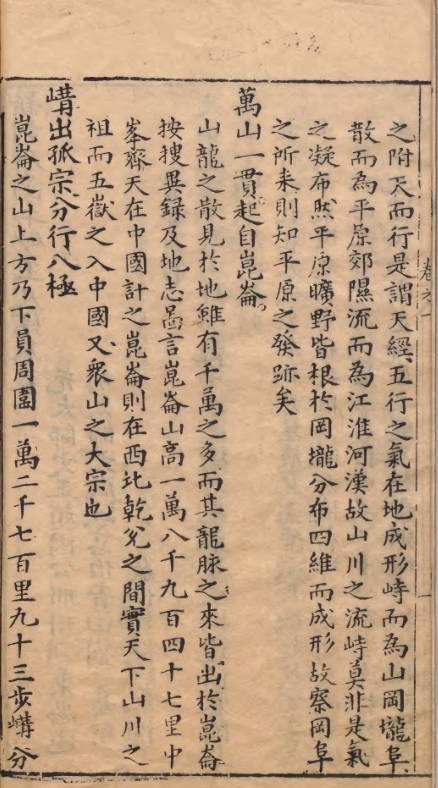 之附天而行是謂天經五行之氣在地成形峙而為山岡壠阜
散而為平原郊隰流而為江淮河漢故山川之流峙莫非是氣
之凝布然平原曠野皆根於岡壠分布四維而成形故察岡阜
之所来則知平原之發跡矣
萬山一貫起自崑崙
山龍之散見於地雖有千萬之多而其龍脉之來皆出於崑崙
按搜異録及地志啚言崑崙山高一萬八千九百四十七里中
峯齊天在中國計之崑崙則在西北乾兊之間實天下山川之
祖而五嶽之入中國又衆山之大宗也
嶹出孤宗分行八極
崑崙之山上方乃下員周圍一萬二千七百里九十三步嶹分
卷之一